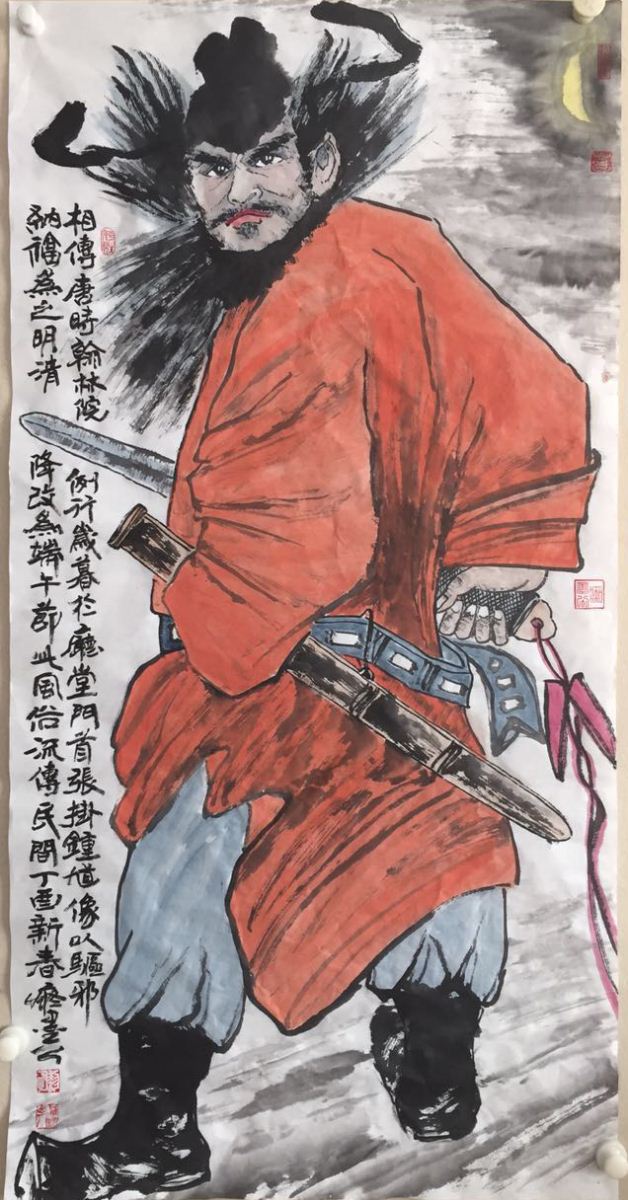 相傳唐時翰林院例行歲暮於廳堂門首張掛鍾馗像以驅邪
納福為之明清降改為端午節此風俗流傳民間丁酉新春癡墨